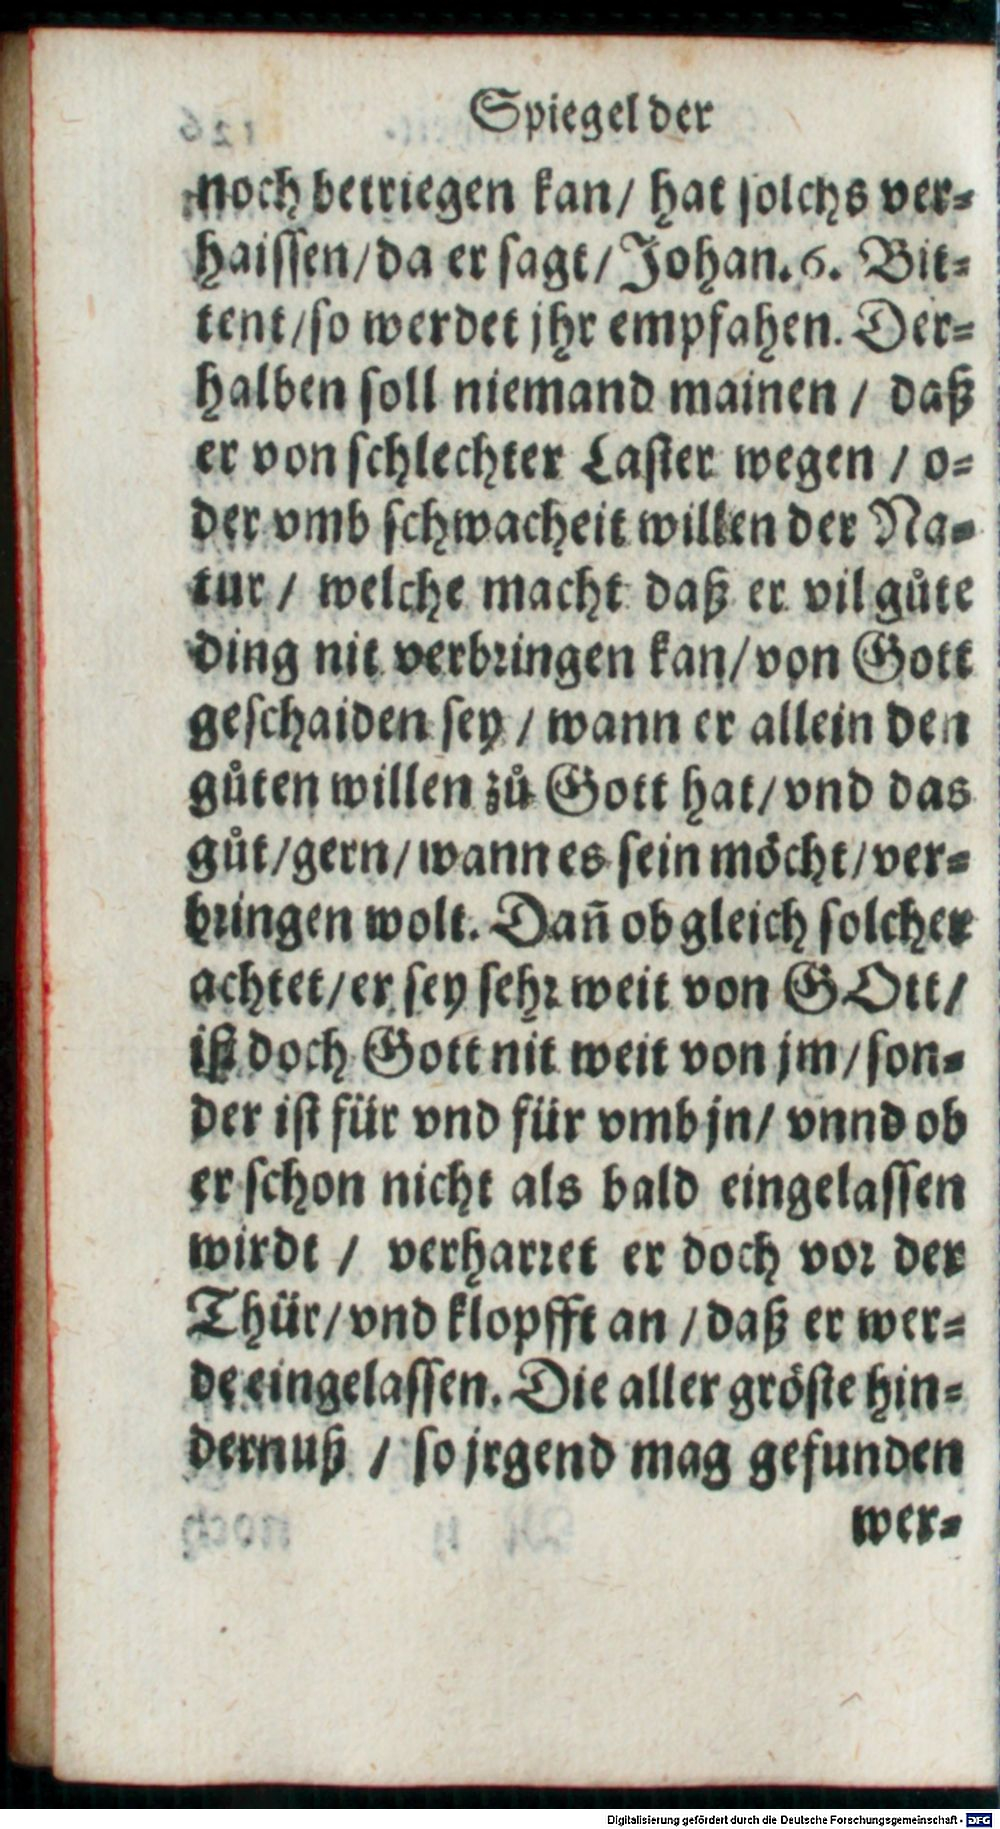 Spiegel der
noch betriegen kan/ hat solchs ver-
haissen/da er sagt/Johan. 6. Bit-
tent/so werdet jhr empfahen. Der-
halben soll niemand mainen / daß
er von schlechter Laster wegen / o-
der vmb schwacheit willen der Na-
tur / welche macht daß er vil gůte
ding nit verbringen kan/von Gott
geschaiden sey / wann er allein den
gůten willen zů Gott hat/vnd das
gůt/gern/wann es sein möcht/ver-
bringen wolt. Dañ ob gleich solcher
achtet/er sey sehr weit von GOtt/
ist doch Gott nit weit von jm/son-
der ist für vnd für vmb jn/ vnnd ob
er schon nicht als bald eingelassen
wirdt / verharret er doch vor der
Thür/vnd klopfft an /daß er wer-
de eingelassen. Die aller gröste hin-
dernuß / so jrgend mag gefunden
wer-
Digitalisierung gefördert durch die Deutsche Forschungsgemeinschaft - DFG